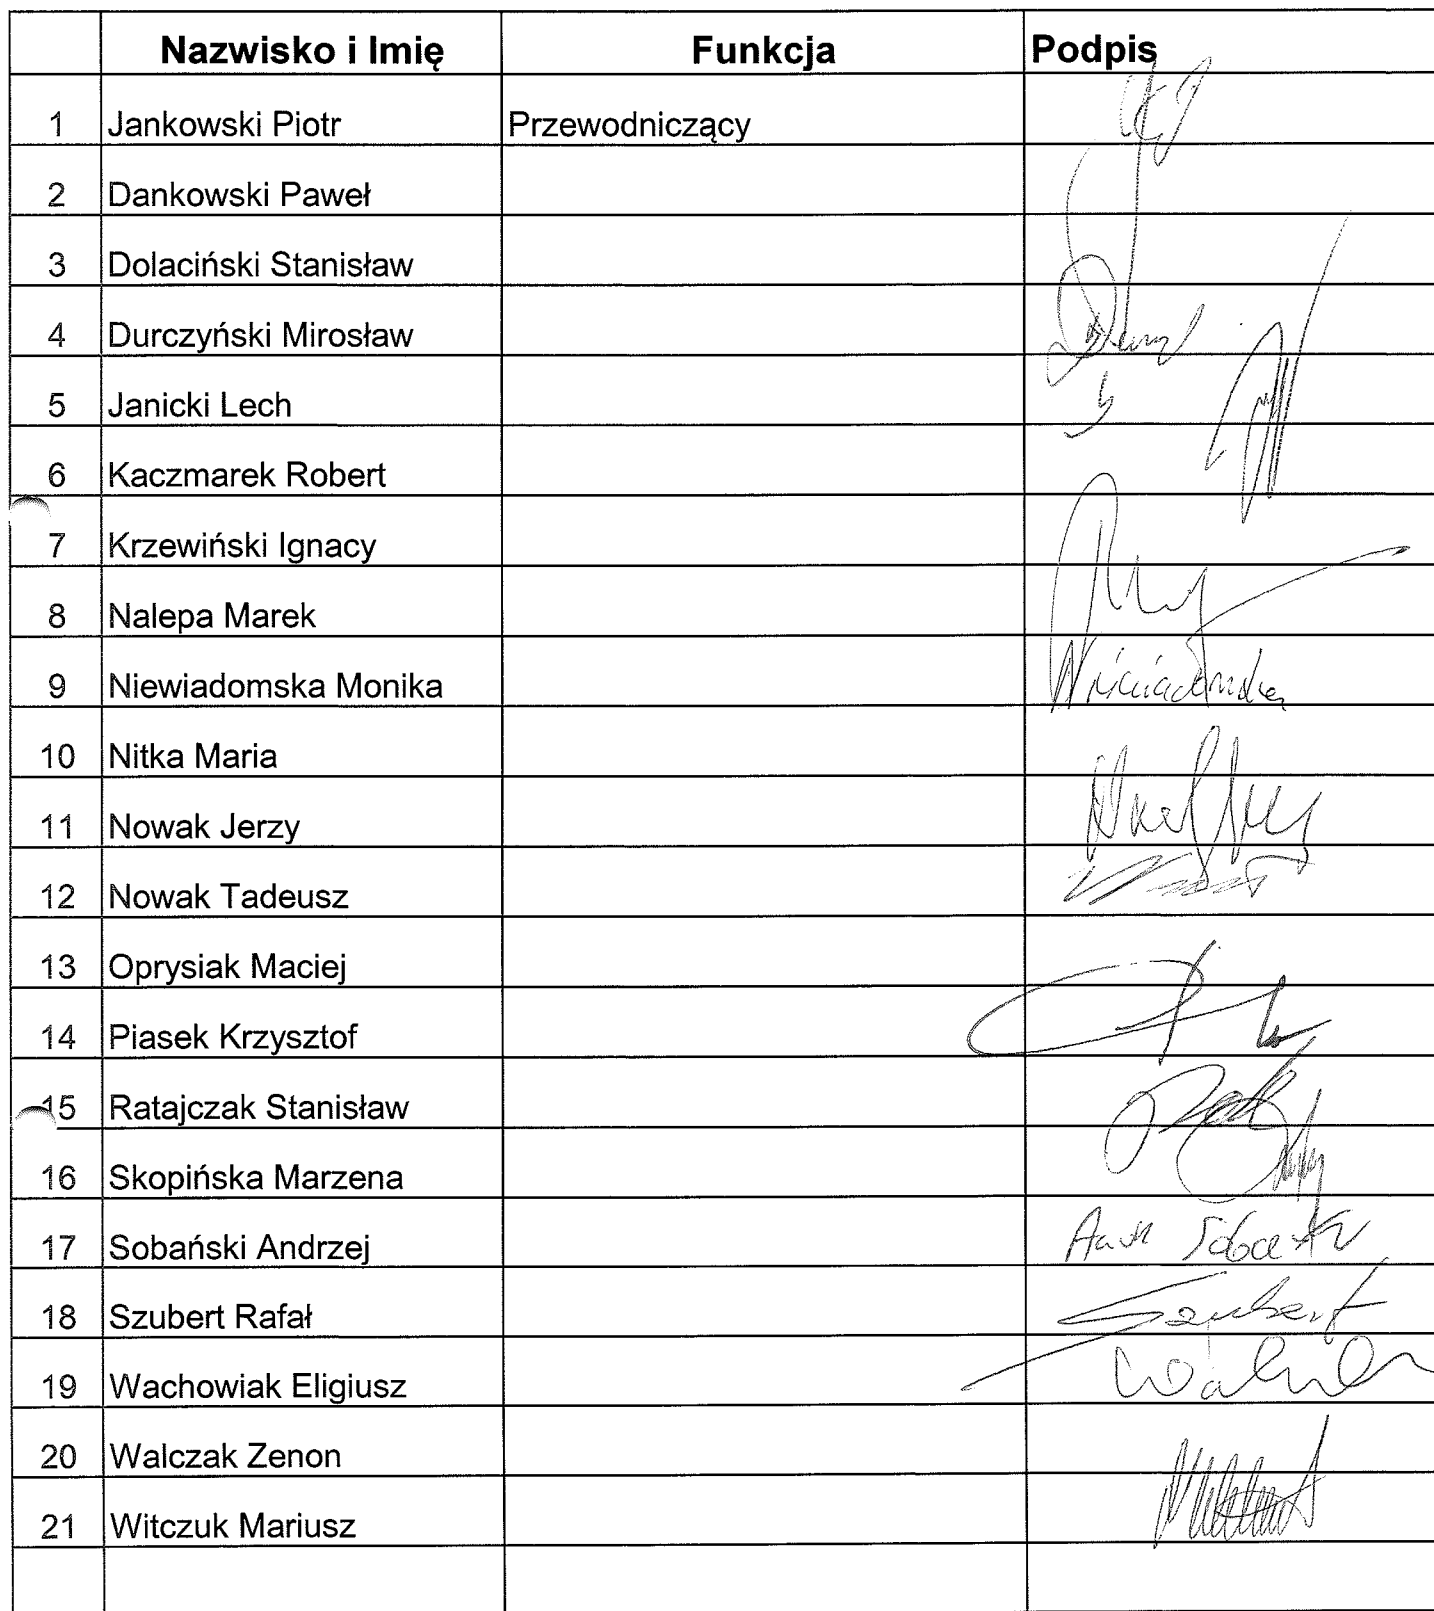 Nazwisko i Imię Funkcja Podpis
1 Jankowski Piotr Przewodniczący
2 Dankowski Paweł
3 Dolaciński Stanisław
4 Durczyński Mirosław
5 Janicki Lech
6 Kaczmarek Robert
7 Krzewiński Ignacy
8 Nalepa Marek
9 Niewiadomska Monika Niewiadomska
10 Nitka Maria
11 Nowak Jerzy
12 Nowak Tadeusz
13 Oprysiak Maciej
14 Piasek Krzysztof
15 Ratajczak Stanisław
16 Skopińska Marzena
17 Sobański Andrzej
18 Szubert Rafał Szubert
19 Wachowiak Eligiusz
20 Walczak Zenon
21 Witczuk Mariusz